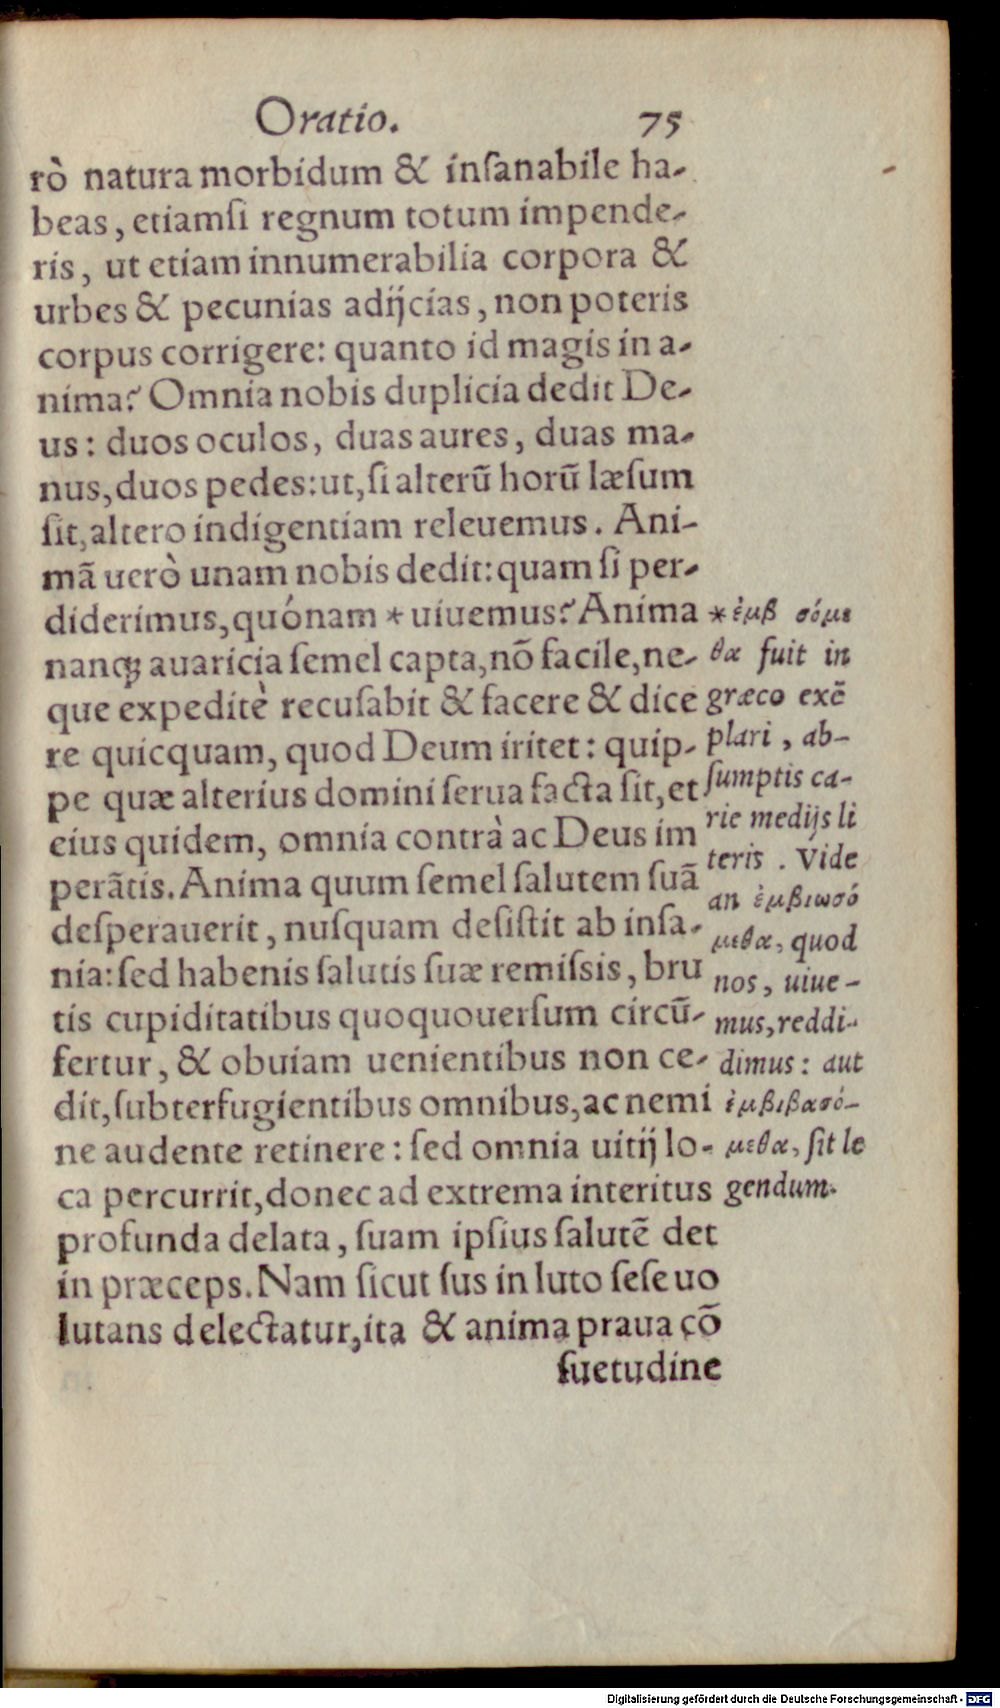 Oratio. 75
rò natura morbidum & inſanabile ha-
beas, etiamſi regnum totum impende-
ris, ut etiam innumerabilia corpora &
urbes & pecunias adijcias, non poteris
corpus corrigere: quanto id magis in a-
nima? Omnia nobis duplicia dedit De-
us: duos oculos, duas aures, duas ma-
nus, duos pedes: ut, ſi alterũ horũ læſum
ſit, altero indigentiam releuemus. Ani-
mã uerò unam nobis dedit: quam ſi per-
diderimus, quónam * uiuemus? Anima
nanqꝫ auaricia ſemel capta, nõ facile, ne-
que expeditè recuſabit & facere & dice
re quicquam, quod Deum iritet: quip-
pe quæ alterius domini ſerua facta ſit, et
eius quidem, omnia contrà ac Deus im
perãtis. Anima quum ſemel ſalutem ſuã
deſperauerit, nuſquam deſiſtit ab inſa-
nia: ſed habenis ſalutis ſuæ remiſsis, bru
tis cupiditatibus quoquouerſum circũ-
fertur, & obuiam uenientibus non ce-
dit, ſubterfugientibus omnibus, ac nemi
ne audente retinere: ſed omnia uitij lo-
ca percurrit, donec ad extrema interitus
profunda delata, ſuam ipſius ſalutẽ det
in præceps. Nam ſicut ſus in luto ſeſe uo
lutans delectatur, ita & anima praua cõ
ſuetudine
* ἐμβ σόμε
θα fuit in
græco exẽ
plari, ab-
ſumptis ca-
rie medijs li
teris. Vide
an ἐμβιωσό
μεθα, quod
nos, uiue-
mus, reddi-
dimus: aut
ἐμβιβασό-
μεθα, ſit le
gendum.
Digitalisierung gefördert durch die Deutsche Forschungsgemeinschaft - DFG